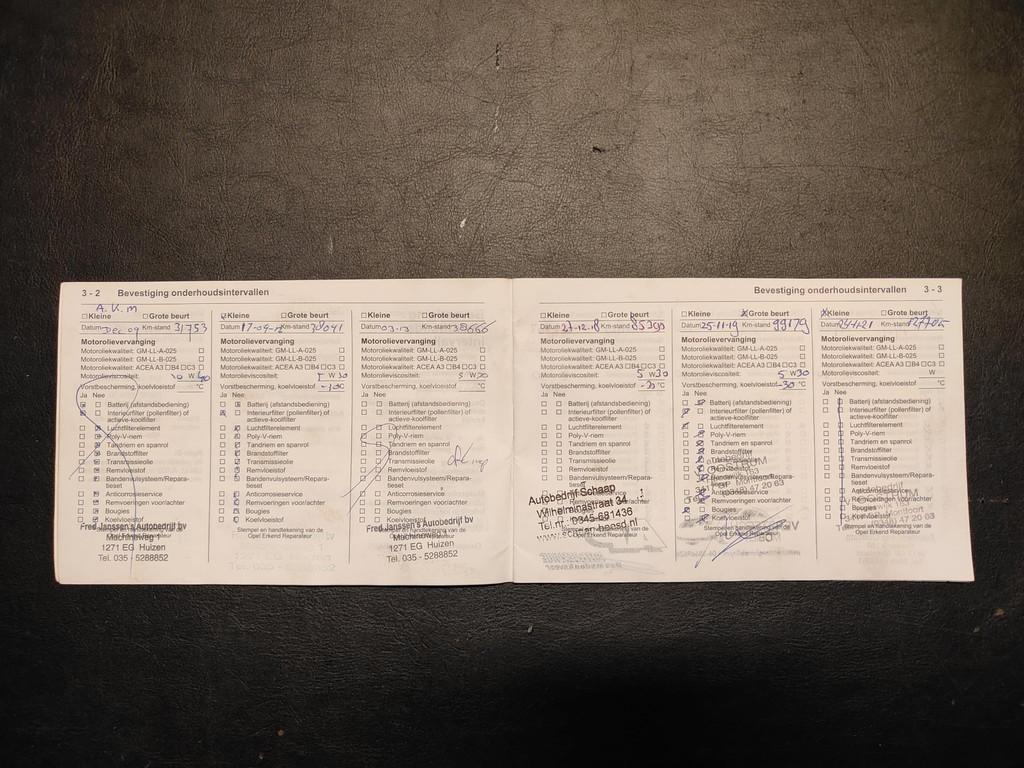 3 - 2 Bevestiging onderhoudsintervallen
A.K.M
Kleine Grote beurt
Datum Dec 09 Km-stand 31753
Motorolievervanging
Motoroliekwaliteit: GM-LL-A-025
Motoroliekwaliteit: GM-LL-B-025
Motoroliekwaliteit: ACEA A3 B4 C3
Motorolieviscositeit: W
Vorstbescherming, koelvloeistof °C
Ja Nee
Batterij (afstandsbediening)
Interieurfilter (pollenfilter) of
actieve-koolfilter
Luchtfilterelement
Poly-V-riem
Tandriem en spanrol
Brandstoffilter
Transmissieolie
Remvloeistof
Bandenvulsysteem/Repara-
tieset
Anticorrosieservice
Remvoeringen voor/achter
Bougies
Koelvloeistof
Fred Janssen's Autobedrijf bv
Machineweg
1271 EG Huizen
Tel. 035 - 5288852
Kleine Grote beurt
Datum Km-stand
Motorolievervanging
Motoroliekwaliteit: GM-LL-A-025
Motoroliekwaliteit: GM-LL-B-025
Motoroliekwaliteit: ACEA A3 B4 C3
Motorolieviscositeit: 5 W 30
Vorstbescherming, koelvloeistof °C
Ja Nee
Batterij (afstandsbediening)
Interieurfilter (pollenfilter) of
actieve-koolfilter
Luchtfilterelement
Poly-V-riem
Tandriem en spanrol
Brandstoffilter
Transmissieolie
Remvloeistof
Bandenvulsysteem/Repara-
tieset
Anticorrosieservice
Remvoeringen voor/achter
Bougies
Koelvloeistof
Stempel en handtekening van de
Opel Erkend Reparateur
Kleine Grote beurt
Datum 03-13 Km-stand
Motorolievervanging
Motoroliekwaliteit: GM-LL-A-025
Motoroliekwaliteit: GM-LL-B-025
Motoroliekwaliteit: ACEA A3 B4 C3
Motorolieviscositeit: 5 W
Vorstbescherming, koelvloeistof °C
Ja Nee
Batterij (afstandsbediening)
Interieurfilter (pollenfilter) of
actieve-koolfilter
Luchtfilterelement
Poly-V-riem
Tandriem en spanrol
Brandstoffilter
Transmissieolie
Remvloeistof
Bandenvulsysteem/Repara-
tieset
Anticorrosieservice
Remvoeringen voor/achter
Bougies
Koelvloeistof
Fred Janssen's Autobedrijf bv
Machineweg
1271 EG Huizen
Tel. 035 - 5288852
Bevestiging onderhoudsintervallen 3 - 3
Kleine Grote beurt
Datum 27.12.18 Km-stand
Motorolievervanging
Motoroliekwaliteit: GM-LL-A-025
Motoroliekwaliteit: GM-LL-B-025
Motoroliekwaliteit: ACEA A3 B4 C3
Motorolieviscositeit: 5 W30
Vorstbescherming, koelvloeistof -30 °C
Ja Nee
Batterij (afstandsbediening)
Interieurfilter (pollenfilter) of
actieve-koolfilter
Luchtfilterelement
Poly-V-riem
Tandriem en spanrol
Brandstoffilter
Transmissieolie
Remvloeistof
Bandenvulsysteem/Repara-
tieset
Autobedrijf Schaap
Wilhelminastraat 34
Tel.nr. 0345-681436
Opel Erkend Reparateur
Kleine Grote beurt
Datum 25-11-19 Km-stand 99179
Motorolievervanging
Motoroliekwaliteit: GM-LL-A-025
Motoroliekwaliteit: GM-LL-B-025
Motoroliekwaliteit: ACEA A3 B4 C3
Motorolieviscositeit: 5 W30
Vorstbescherming, koelvloeistof -30 °C
Ja Nee
Batterij (afstandsbediening)
Interieurfilter (pollenfilter) of
actieve-koolfilter
Luchtfilterelement
Poly-V-riem
Tandriem en spanrol
Brandstoffilter
Transmissieolie
Remvloeistof
Bandenvulsysteem/Repara-
tieset
Anticorrosieservice
Remvoeringen voor/achter
Bougies
Koelvloeistof
Stempel en handtekening van de
Opel Erkend Reparateur
Kleine Grote beurt
Datum Km-stand
Motorolievervanging
Motoroliekwaliteit: GM-LL-A-025
Motoroliekwaliteit: GM-LL-B-025
Motoroliekwaliteit: ACEA A3 B4 C3
Motorolieviscositeit: W
Vorstbescherming, koelvloeistof °C
Ja Nee
Batterij (afstandsbediening)
Interieurfilter (pollenfilter) of
actieve-koolfilter
Luchtfilterelement
Poly-V-riem
Tandriem en spanrol
Brandstoffilter
Transmissieolie
Remvloeistof
Bandenvulsysteem/Repara-
tieset
Anticorrosieservice
Remvoeringen voor/achter
Bougies
Koelvloeistof
Stempel en handtekening van de
Opel Erkend Reparateur